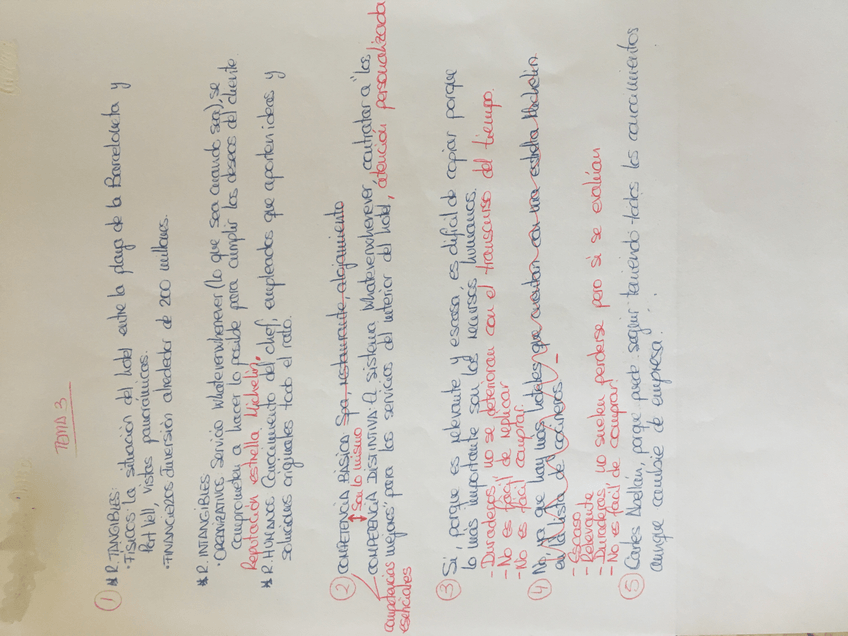 TEMA 3
① * R. TANGIBLES:
• FÍSICOS: la situación del hotel entre la playa de la Barceloneta y
Port Vell, vistas panorámicas.
• FINANCIEROS Inversión alrededor de 200 millons.
* R. INTANGIBLES
• ORGANIZATIVOS Servicio Whateverwhenever (lo que sea cuando sea), se
comprometen a hacer lo posible para cumplir los deseos del cliente
Reputación estrella Michelin.
* R. HUMANOS Conocimiento del chef, empleados que aporten ideas y
soluciones originales todo el rato.
② COMPETENCIA BÁSICA Spa, restaurante, alojamiento
Son lo mismo
COMPETENCIA DISTINTIVA El sistema Whateverwhenever, contratar a "los
mejores" para los servicios del interior del hotel, atención personalizada
competencias
esenciales
③ Sí, porque es relevante y escasa, es difícil de copiar porque
lo más importante son los recursos humanos.
- Duraderos, no se deterioran con el transcurso del tiempo.
- No es fácil de replicar
- No es fácil comprar.
④ No, ya que hay más hoteles que cuentan con una estrella Michelin
en la lista de cocineros. -
- Escaso
- Relevante
- Duraderas no suelen perderse pero si se evalúan
- No es fácil de comprar
⑤ Carles Abellán, porque puede seguir teniendo todos los conocimientos
aunque cambie de empresa.